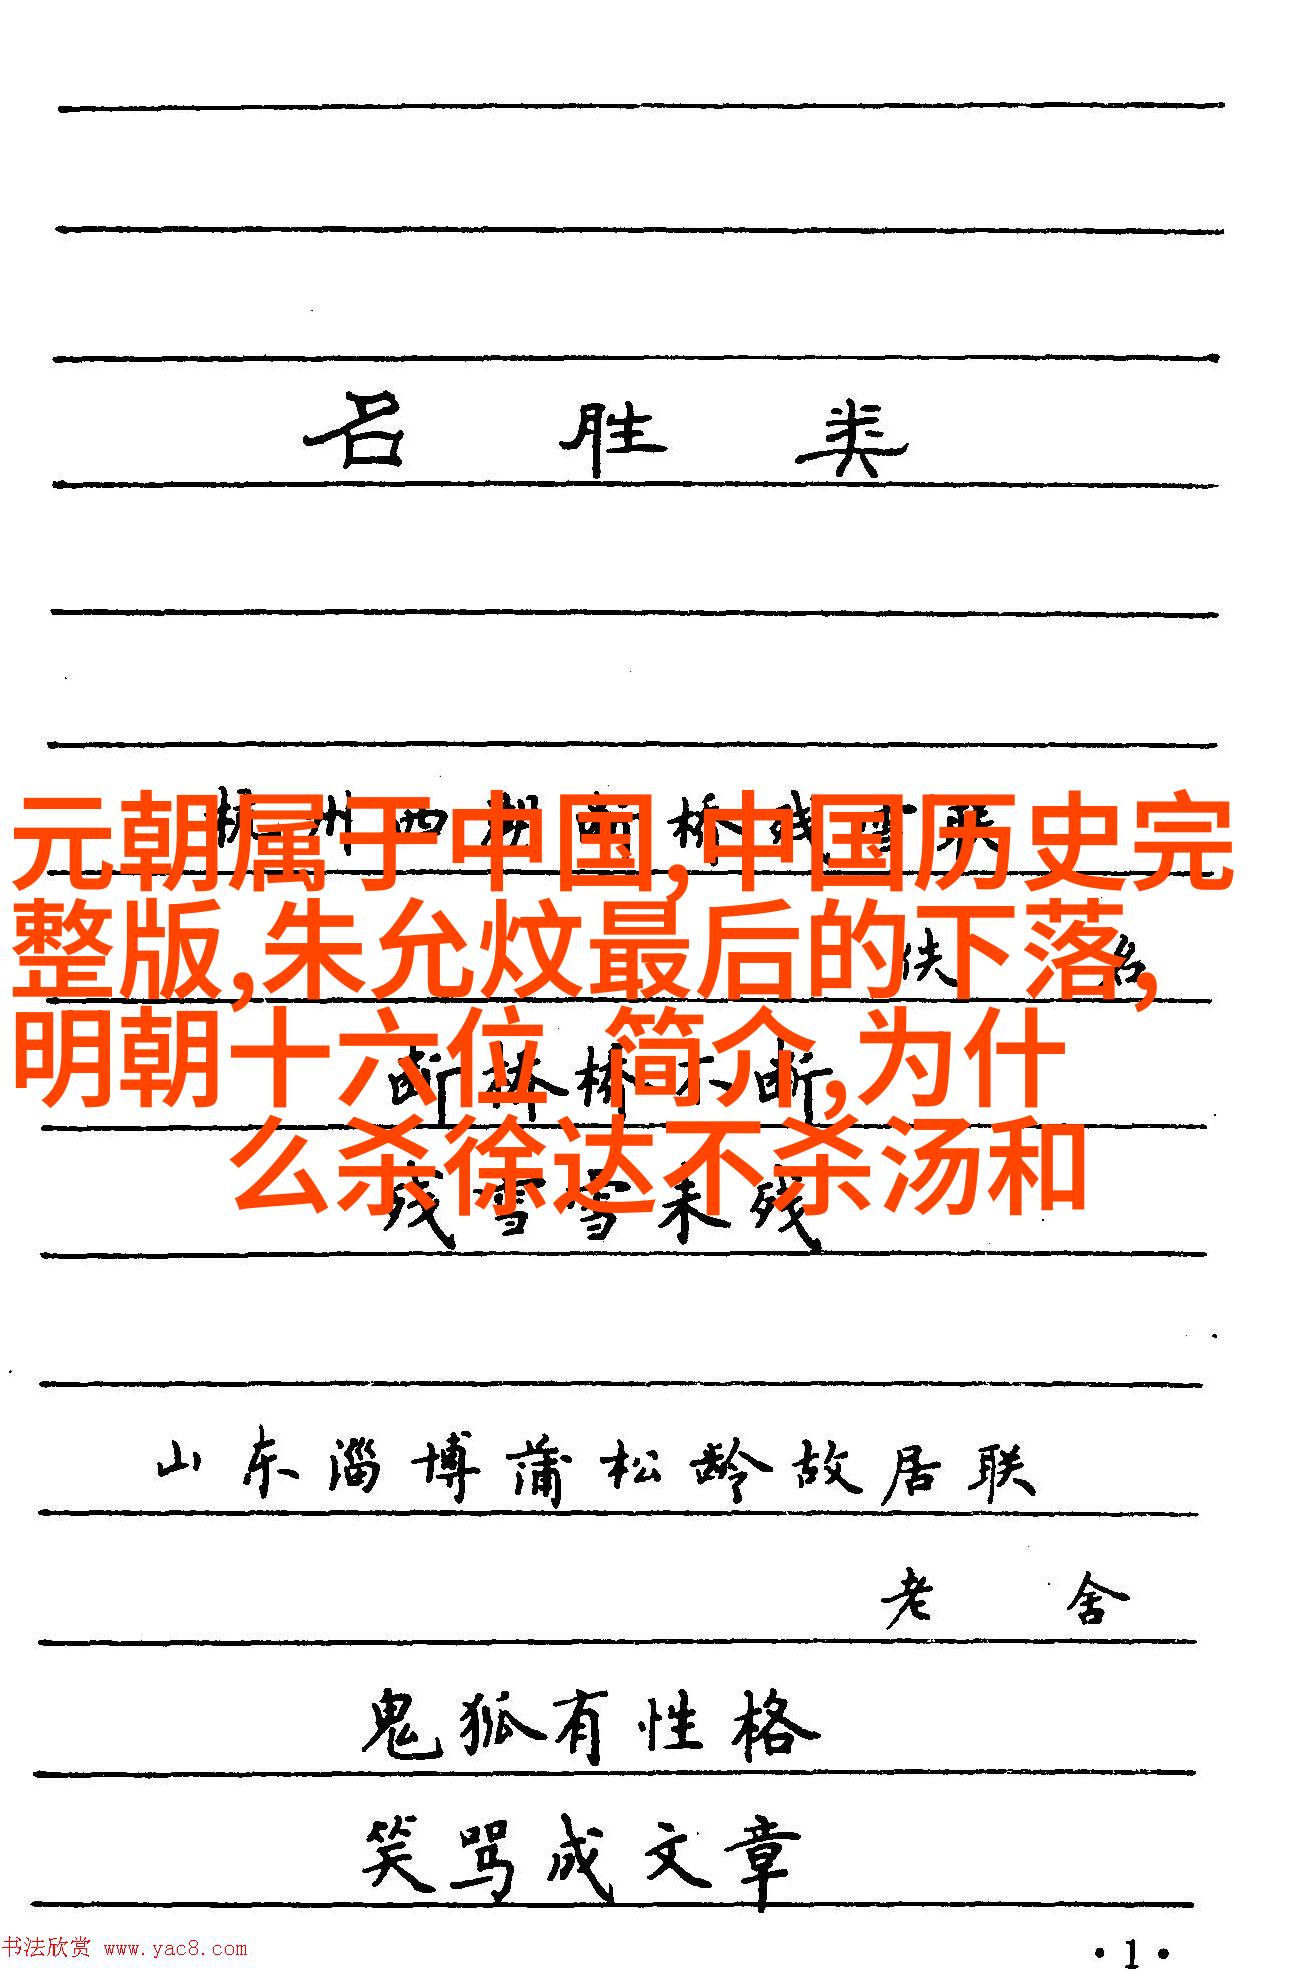 名胜类
杭州西湖断桥残雪联
元朝属于中国,中国历史完
整版,朱允炆最后的下落,
佚名
明朝十六位 简介,为什
断桥桥不断
么杀徐达不杀汤和
残雪雪未残
山东淄博蒲松龄故居联
老舍
鬼狐有性格
笑骂成文章
书法欣赏 www.yac8.com
·1·